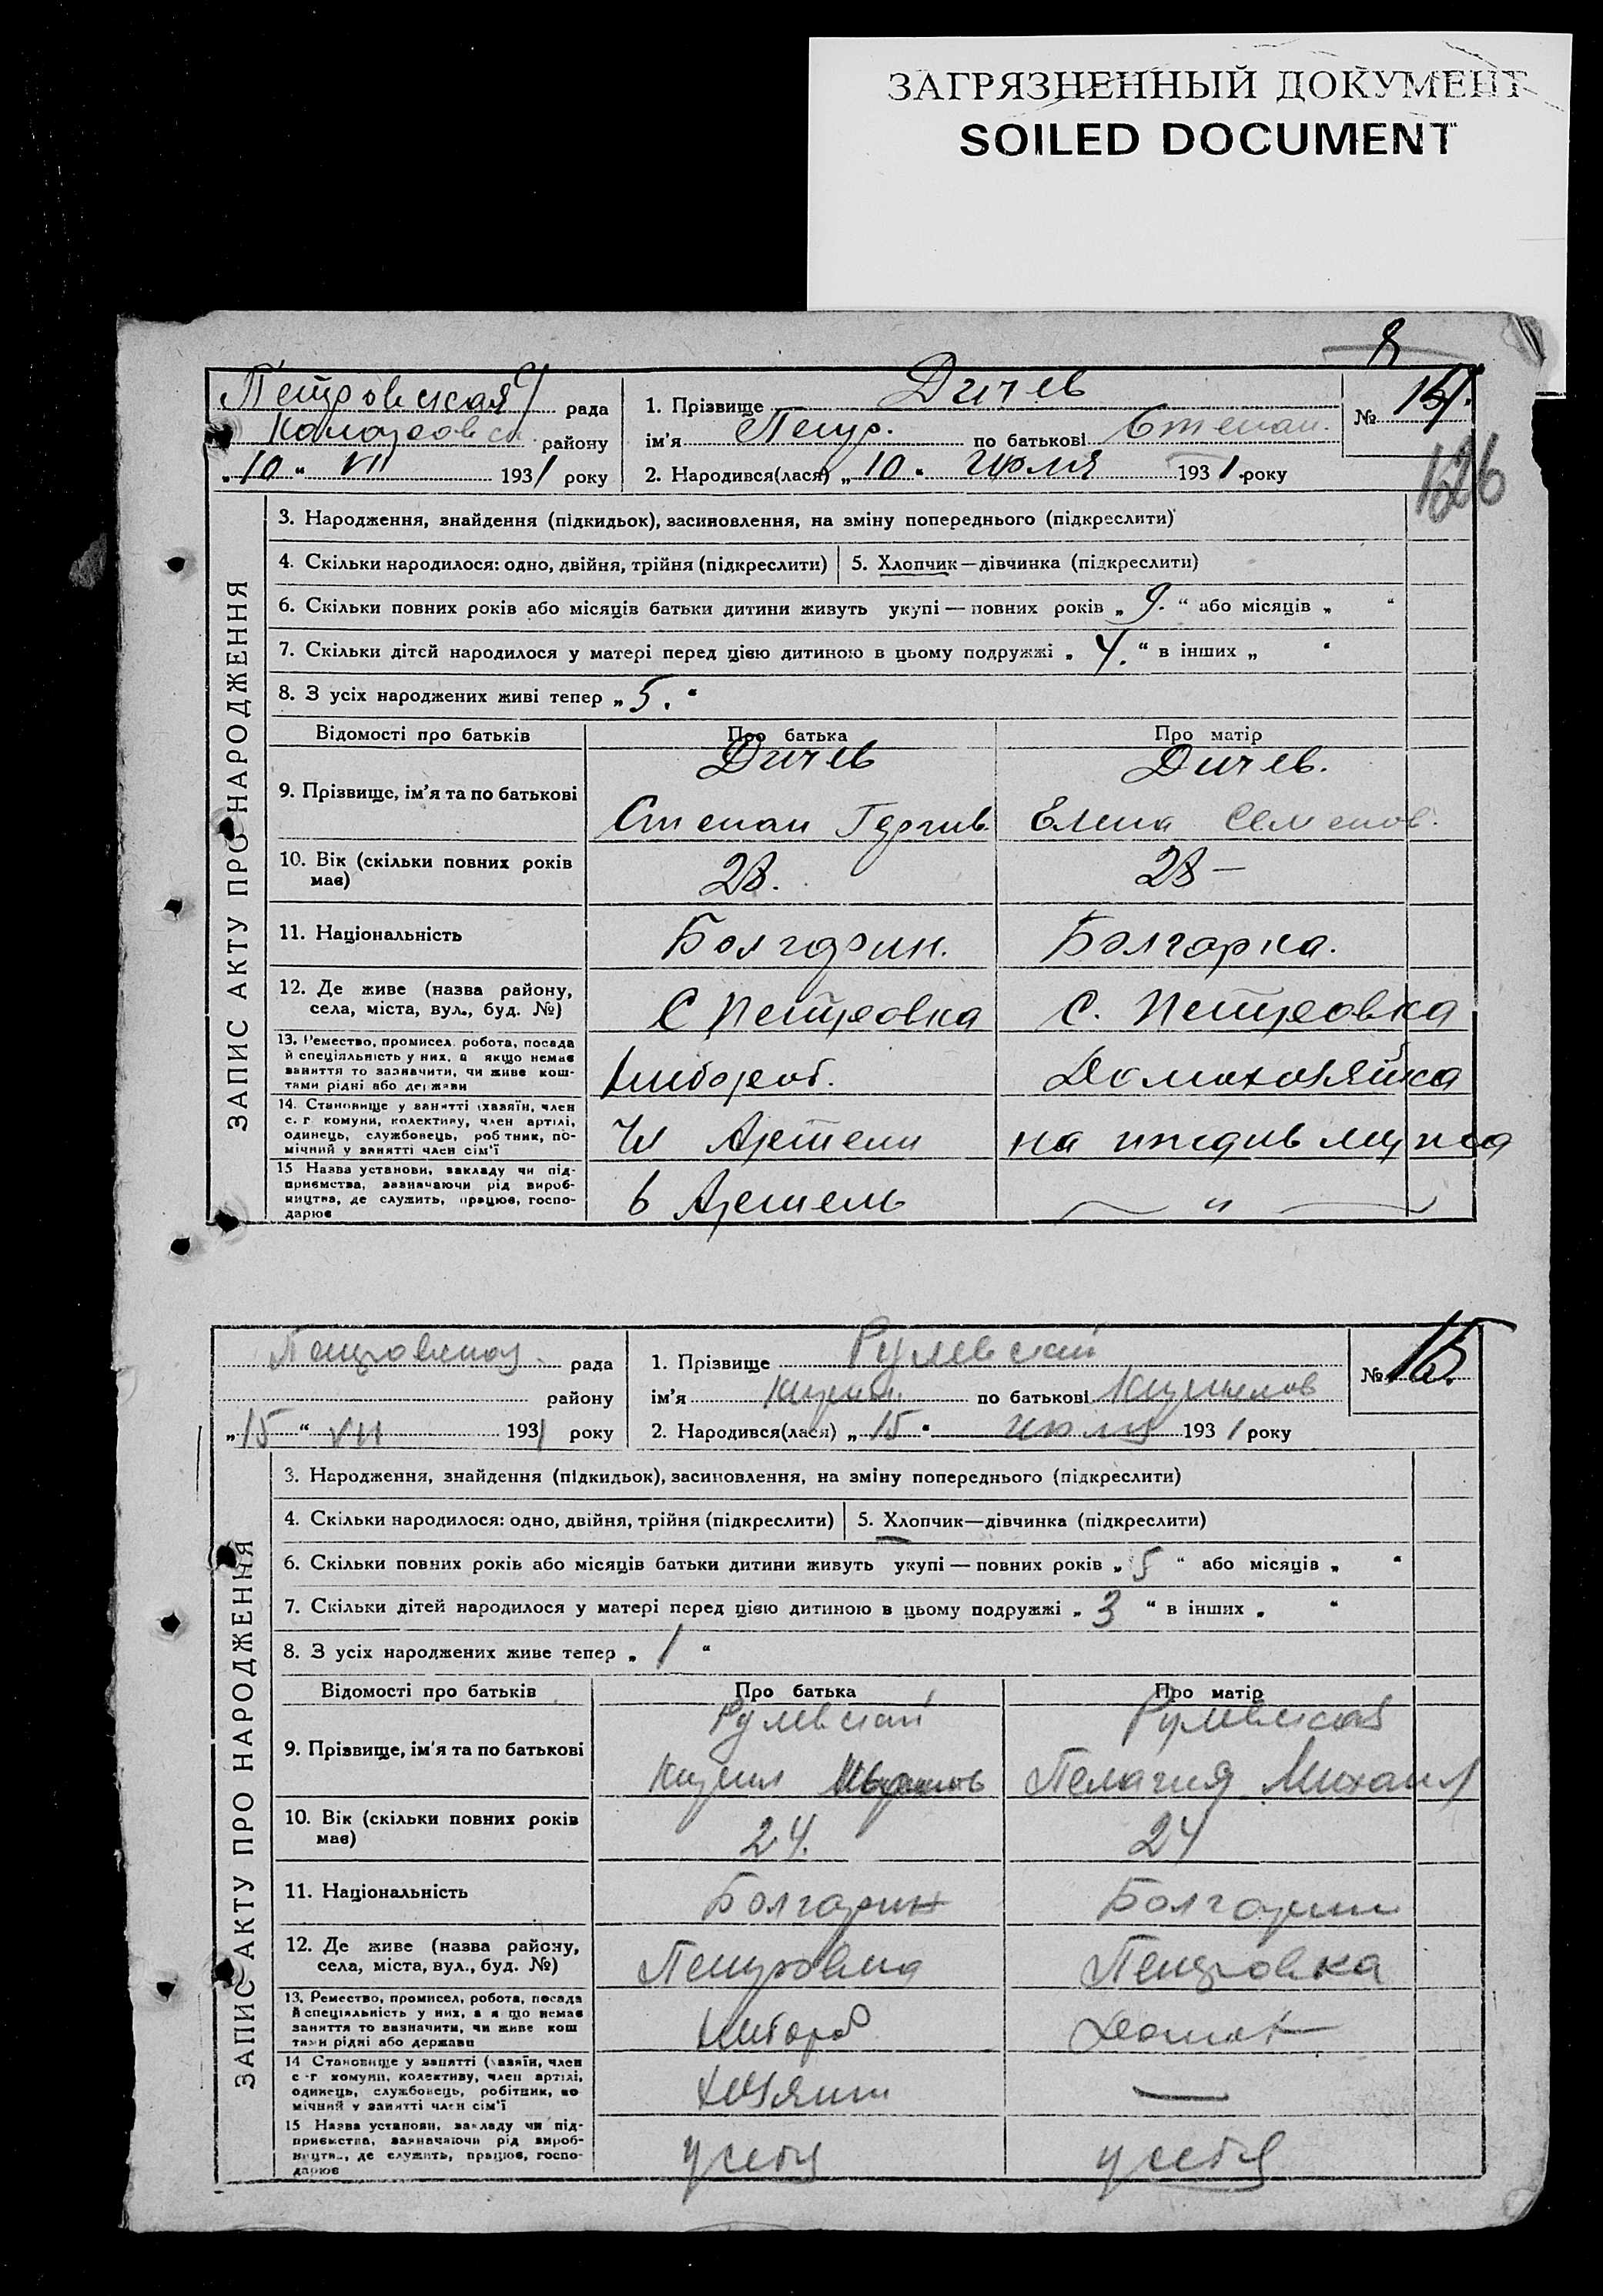 ЗАГРЯЗНЕННЫЙ ДОКУМЕНТ
SOILED DOCUMENT
8
Петровская рада
району
„10“ VII 1931 року
1. Прізвище Дичев
ім'я Петр. по батькові Степан.
2. Народився(лася) „10“ Июля 1931 року
№ 14.
126
ЗАПИС АКТУ ПРО НАРОДЖЕННЯ
3. Народження, знайдення (підкидьок), засиновлення, на зміну попереднього (підкреслити)
4. Скільки народилося: одно, двійня, трійня (підкреслити) 5. Хлопчик—дівчинка (підкреслити)
6. Скільки повних років або місяців батьки дитини живуть укупі — повних років „9.“ або місяців „ “
7. Скільки дітей народилося у матері перед цією дитиною в цьому подружжі „4.“ в інших „ “
8. З усіх народжених живі тепер „5.“
Відомості про батьків Про батька Про матір
Дичев Дичев.
9. Прізвище, ім'я та по батькові
Степан Елена Семенов.
10. Вік (скільки повних років має) 28. 28 —
11. Національність Болгарин. Болгарка.
12. Де живе (назва району, С Петровка С. Петровка
села, міста, вул., буд. №)
13. Ремество, промисел, робота, посада
й спеціяльність у них, а якщо немає
заняття то зазначити, чи живе кош-
тами рідні або держави
Хлебороб. Домохозяйка
14. Становище у занятті (хазяїн, член
с. г комуни, колективу, член артілі,
одинець, службовець, робітник, по-
мічний у занятті член сім'ї
Чл Артели на иждив мужа
15 Назва установи, закладу чи під-
приємства, зазначаючи рід вироб-
ництва, де служить, працює, госпо-
дарює
в Артель — " —
Петровская рада
району
„15“ VII 1931 року
1. Прізвище Рулевский
ім'я Кирил. по батькові Кирилов
2. Народився(лася) „15“ Июля 1931 року
№ 15.
ЗАПИС АКТУ ПРО НАРОДЖЕННЯ
3. Народження, знайдення (підкидьок), засиновлення, на зміну попереднього (підкреслити)
4. Скільки народилося: одно, двійня, трійня (підкреслити) 5. Хлопчик—дівчинка (підкреслити)
6. Скільки повних років або місяців батьки дитини живуть укупі — повних років „5“ або місяців „ “
7. Скільки дітей народилося у матері перед цією дитиною в цьому подружжі „3“ в інших „ “
8. З усіх народжених живе тепер „1“
Відомості про батьків Про батька Про матір
Рулевский Рулевская
9. Прізвище, ім'я та по батькові
Кирил Пелагия Михаил
10. Вік (скільки повних років має) 24. 24
11. Національність Болгарин Болгарин
12. Де живе (назва району, Петровка Петровка
села, міста, вул., буд. №)
13. Ремество, промисел, робота, посада
й спеціяльність у них, а якщо немає
заняття то зазначити, чи живе кош
тами рідні або держави
Хлебороб Домох
14 Становище у занятті (хазяїн, член
с-г комуни, колективу, член артілі,
одинець, службовець, робітник, по
мічний у занятті член сім'ї
Хозяин —
15 Назва установи, закладу чи під-
приємства, зазначаючи рід вироб-
ництв., де служить, працює, госпо-
дарює
у себя у себя